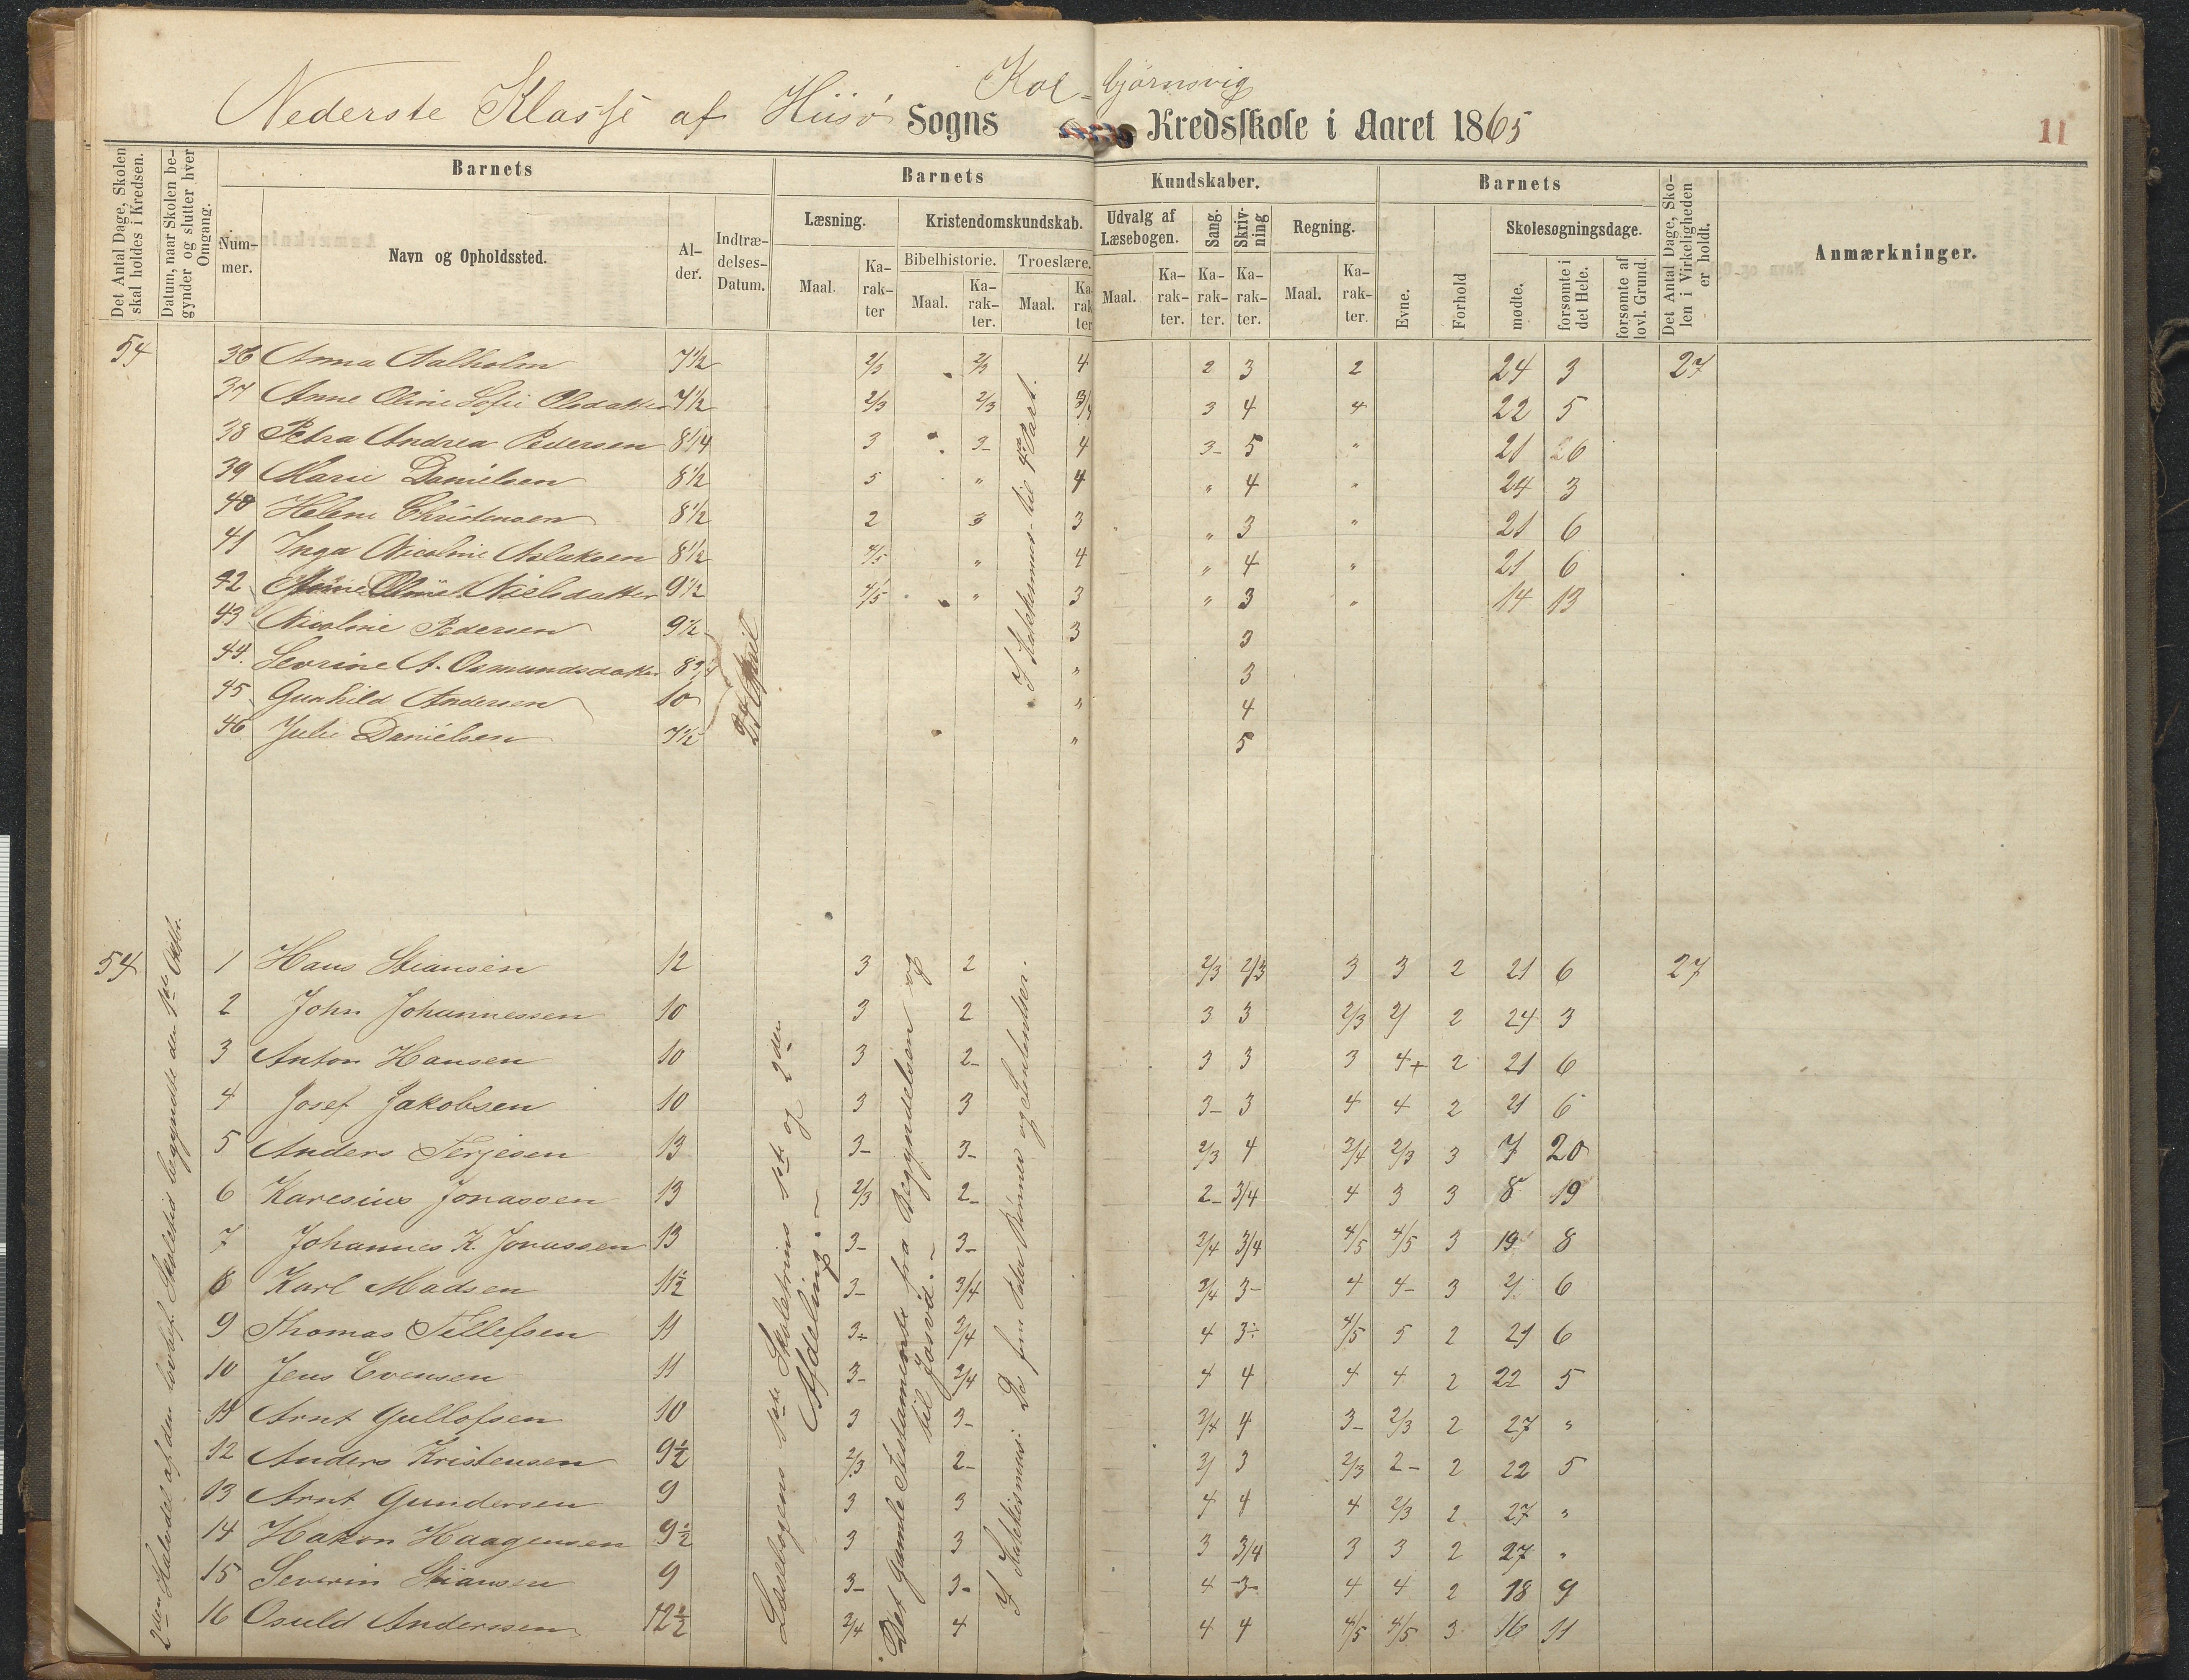 Kol- bjørnsvig
Nederste Klasse af Hiisø Sogns Kredsskole i Aaret 1865
11
Det Antal Dage, Skolen skal holdes i Kredsen.
Datum, naar Skolen begynder og slutter hver Omgang.
Barnets
Barnets Kundskaber.
Barnets
Det Antal Dage, Skolen i Virkeligheden er holdt.
Anmærkninger.
Nummer.
Navn og Opholdssted.
Alder.
Indtrædelses-Datum.
Læsning.
Kristendomskundskab.
Udvalg af Læsebogen.
Sang.
Skrivning
Regning.
Evne.
Forhold
Skolesøgningsdage.
Maal.
Karakter
Bibelhistorie.
Troeslære.
Maal.
Karakter.
Maal.
Karakter
Maal.
Karakter.
Karakter.
Karakter.
Maal.
Karakter.
mødte.
forsømte i det Hele.
forsømte af lovl. Grund.
54 36 Anna Aalholm 7½ 2/3 2/3 4 2 3 2 24 3 27
37 Anne Oline Sofie Olsdatter 7½ 2/3 2/3 3/4 3 4 4 22 5
38 Petra Andrea Pedersen 8 1/4 3 3- 4 3- 5 " 21
39 Marie Danielsen 8½ 5 " 4 " 4 " 24 3
40 Helene Christensen 8½ 2 3 3 " 3 " 21 6
41 Inga Nicoline Aslaksen 8½ 4/5 " 4 " 4 " 21 6
42 Nielsdatter 9½ 4/5 " 3 " 3 " 14 13
43 Nicoline Pedersen 9½ 3 3
44. Sevrine A. Osmundsdatter 8 3/4 " 3
45 Gunhild Andersen 10 " 4
46 Julie Danielsen 7½ " 5
24 April
I Katekismus til 4de Part.
54 1 Hans Stiansen 12 3 2 2/3 2/3 3 3 2 21 6 27
2 John Johannessen 10 3 2 3 3 2/3 2/ 2 24 3
3 Anton Hansen 10 3 2- 3 3 3 4+ 2 21 6
4 Josef Jakobsen 10 3 3 3- 3 4 4 2 21 6
5 Anders Terjesen 13 3- 3- 2/3 4 3/4 2/3 3 7 20
6 Karesius Jonassen 13 2/3 2- 2- 3/4 4 3 3 8 19
7 Johannes K. Jonassen 13 3- 3- 3/4 3/4 4/5 4/5 3 19 8
8 Karl Madsen 11½ 3- 3/4 3/4 3- 4 4- 3 21 6
9 Thomas Tellefsen 11 3÷ 3/4 4 3÷ 4/5 5 2 21 6
10 Jens Evensen 11 3- 3/4 4 4 4 4 2 22 5
11 Arnt Gullofsen 10 3 3- 3/4 4 3- 2/3 2 27 "
12 Anders Kristensen 9½ 2/3 2- 3/ 3 2/3 2- 2 22 5
13 Arnt Gundersen 9 3 3 4 4 4 2/3 2 27 "
14 Hakon Haagensen 9½ 3 3 3 3/4 3 3 2 27 "
15 Severin Stiansen 9 3- 3- 4 3- 4 4 2 18 9
16 Osuld Anderssen 12½ 3/4 4 4 4 4/5 4/5 3 16 11
2den Halvdel af den lovbef. Skoletid begyndte den 1ste Oktbr.
Læsebogens 1ste Skoletrins 1ste og 2den Afdeling.
Det gamle Testamente fra Begyndelsen og til Josva.
I Katekismus: De fem Parter og Sententser.